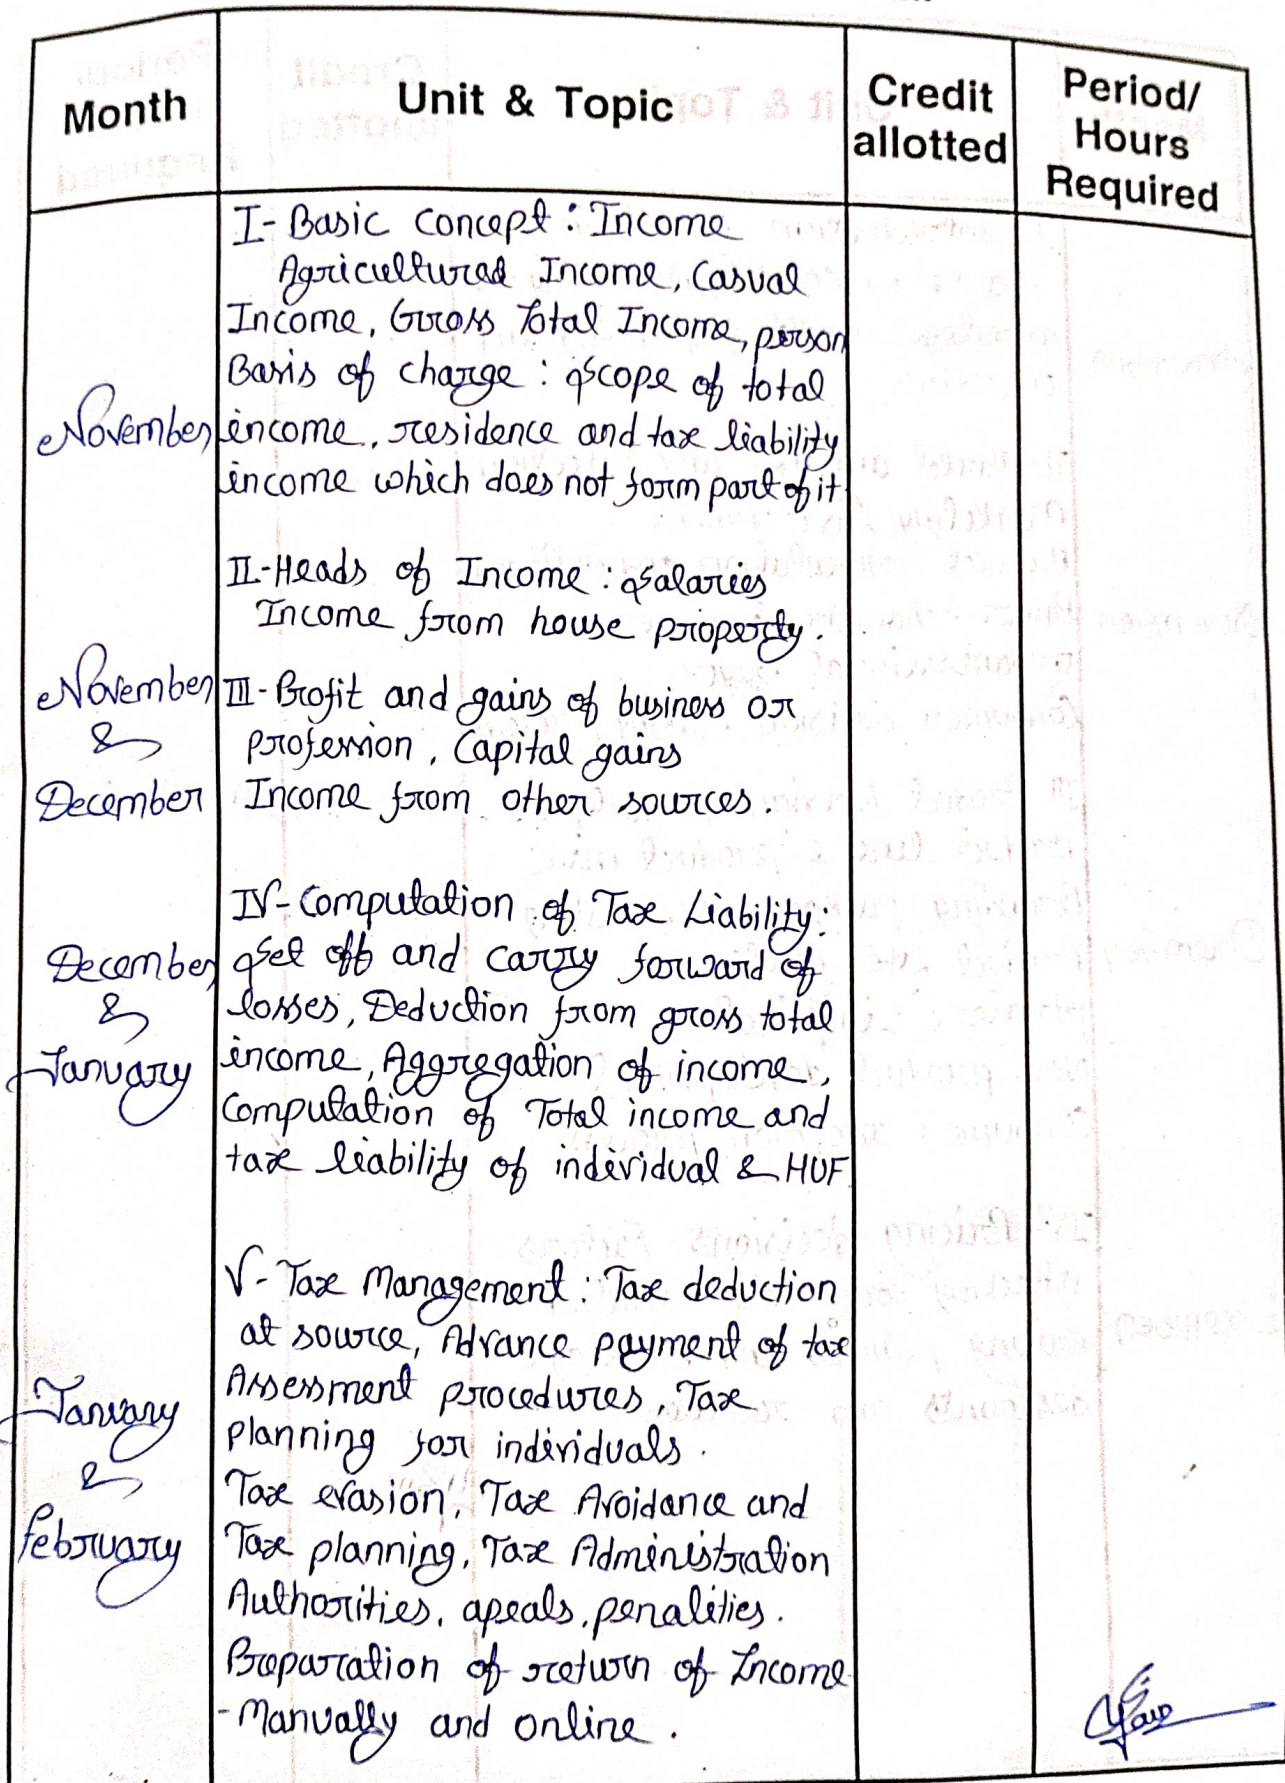 Month Unit & Topic Credit allotted Period/ Hours Required
I- Basic concept : Income
Agricultural Income, Casual
Income, Gross Total Income, person
Basis of charge : Scope of total
November income, residence and tax liability
income which does not form part of it
II-Heads of Income : Salaries
Income from house property.
November III - Profit and gains of business or
& profession, Capital gains
December Income from other sources.
IV- Computation of Tax Liability:
December Set off and carry forward of
& losses, Deduction from gross total
January income, Aggregation of income,
Computation of Total income and
tax liability of individual & HUF
V- Tax Management : Tax deduction
at source, Advance payment of tax
January Assessment procedures, Tax
planning for individuals.
& Tax evasion, Tax Avoidance and
february Tax planning, Tax Administration
Authorities, apeals, penalities.
Preparation of return of Income
- Manually and online.